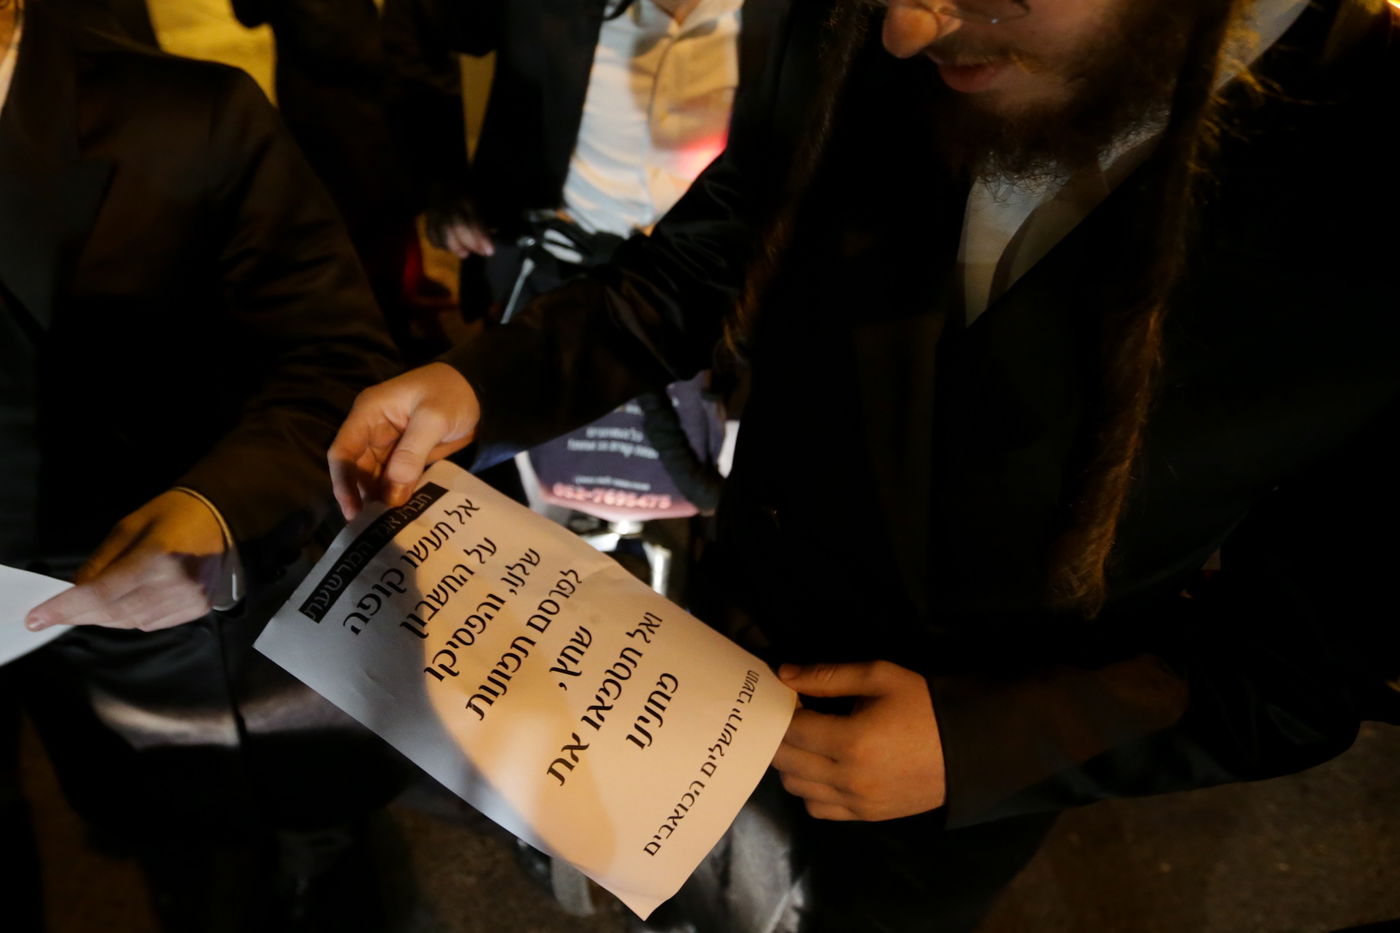 חברת אגד המרשעת
אל תעשו קופה
על החשבון
שלנו, והפסיקו
לפרסם תמונות
שחץ,
ואל תטמאו את
מחנינו
תושבי ירושלים הכואבים
052-7695475